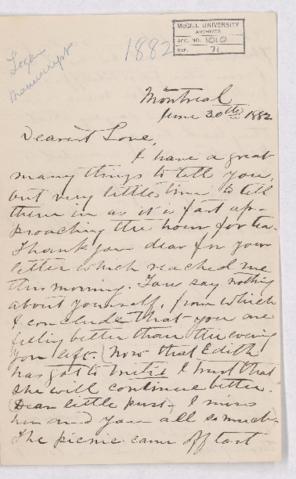 McGILL UNIVERSITY
ARCHIVES
ACC. NO. 1010
REF. 71
1882
Manuscript
Montreal
June 30th 1882
Dearest Love
I have a great
many things to tell you,
but very little time to tell
them in as it is fast ap-
proaching the hour for tea.
Thank you dear for your
letter which reached me
this morning. You say nothing
about yourself, from which
I conclude that you are
feeling better than the evening
you left. Now that Edith
has got to Métis I trust that
she will continue better.
Dear little puss, I miss
her and you all so much.
The picnic came off last